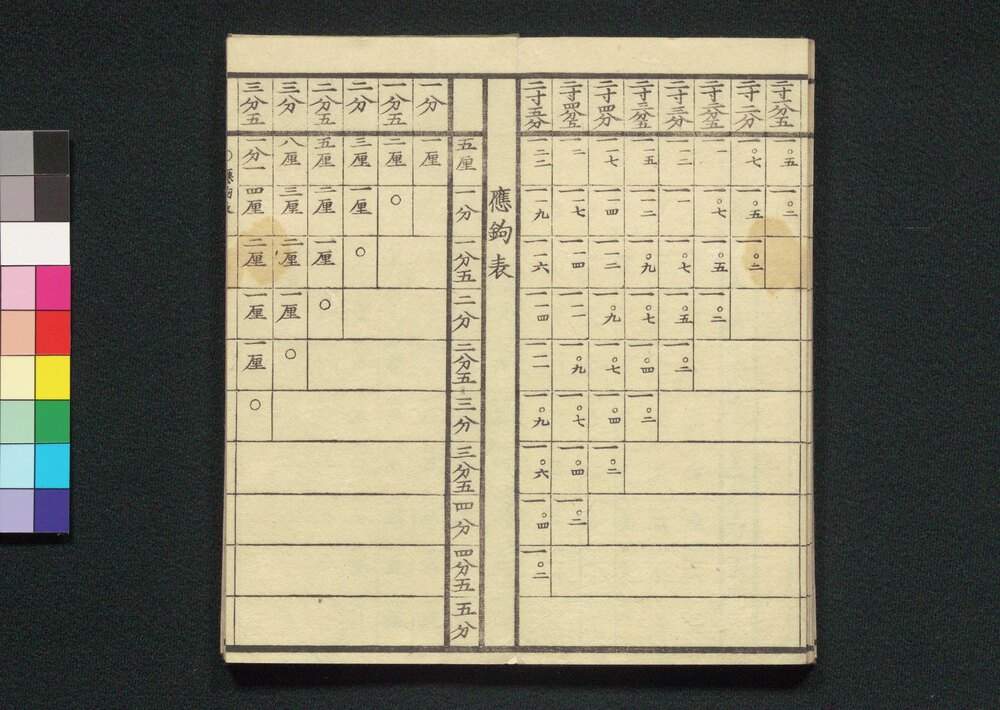 二寸一分五 一〇五 一〇二
二寸二分 一〇七 一〇五 一〇二
二寸二分五 一一 一〇七 一〇五 一〇二
二寸三分 一一二 一一 一〇七 一〇五 一〇二
二寸三分五 一一五 一一二 一〇九 一〇七 一〇四 一〇二
二寸四分 一一七 一一四 一一二 一〇九 一〇七 一〇四 一〇二
二寸四分五 一二 一一七 一一四 一一一 一〇九 一〇七 一〇四 一〇二
二寸五分 一二二 一一九 一一六 一一四 一一一 一〇九 一〇六 一〇四 一〇二
應鉤表
五厘 一分 一分五 二分 二分五 三分 三分五 四分 四分五 五分
一分 一厘
一分五 二厘 〇
二分 三厘 一厘 〇
二分五 五厘 二厘 一厘 〇
三分 八厘 三厘 二厘 一厘 〇
三分五 一分一 四厘 二厘 一厘 一厘 〇